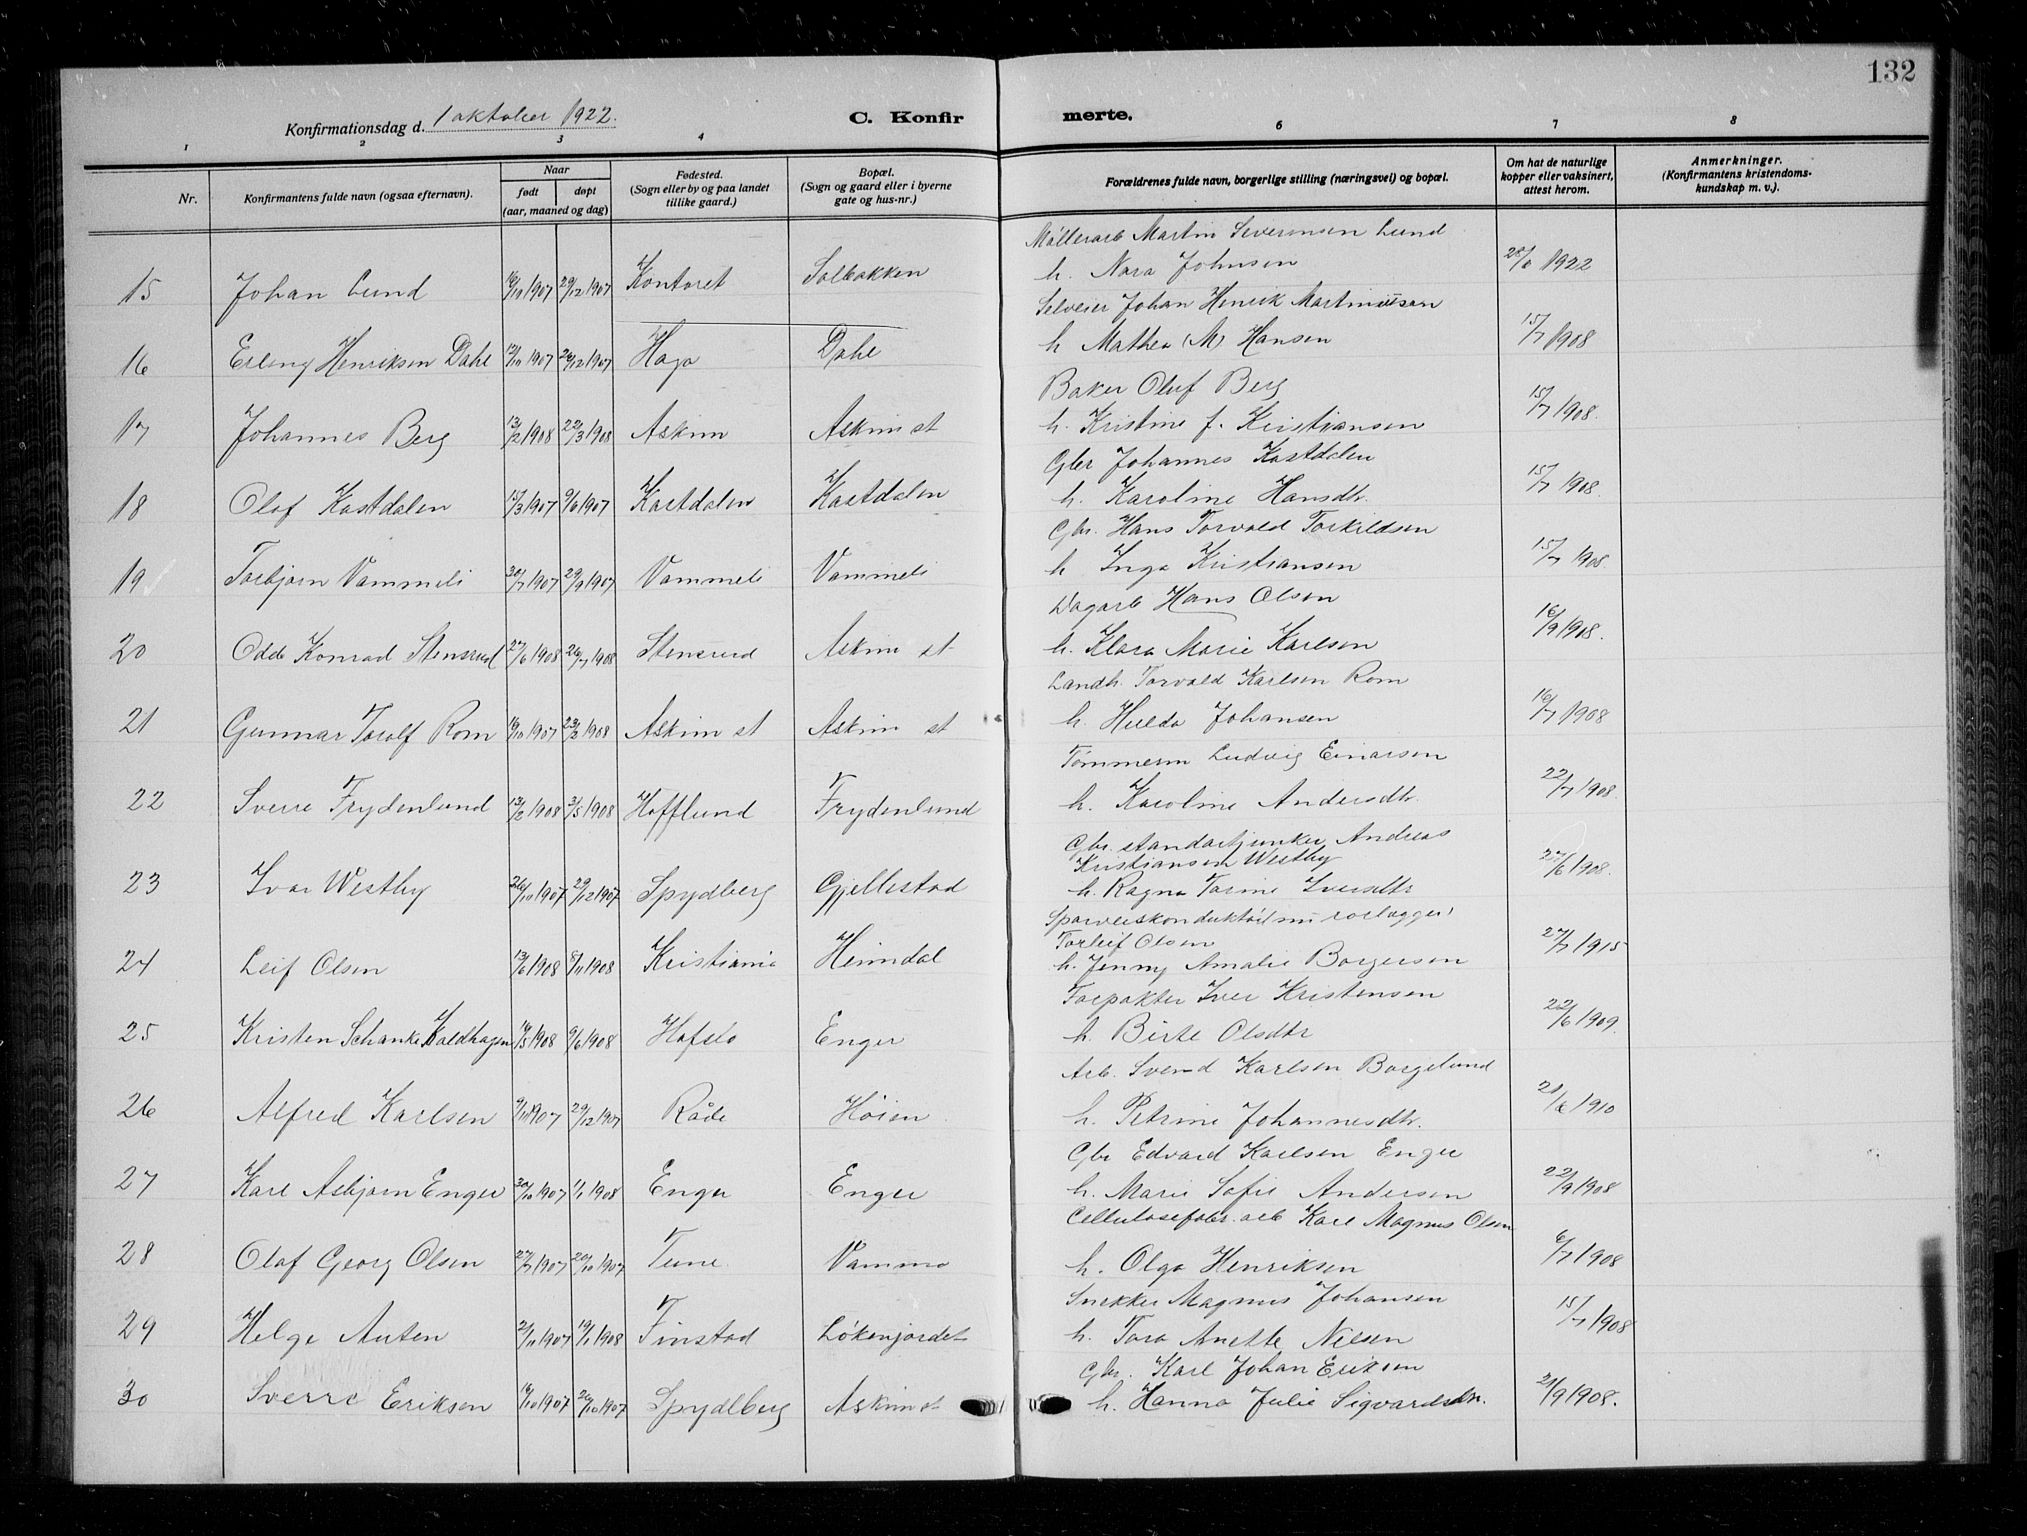 132
Konfirmationsdag d. 1 oktober 1922.
C. Konfirmerte.
1 2 3 4 6 7 8
Nr.
Konfirmantens fulde navn (ogsaa efternavn).
Naar
født døpt
(aar, maaned og dag)
Fødested.
(Sogn eller by og paa landet
tillike gaard.)
Bopæl.
(Sogn og gaard eller i byerne
gate og hus-nr.)
Forældrenes fulde navn, borgerlige stilling (næringsvei) og bopæl.
Om hat de naturlige
kopper eller vaksinert,
attest herom.
Anmerkninger.
(Konfirmantens kristendoms-
kundskap m. v.).
Møllerarb Martin Severinsen Lund
15 Johan Lund 16/10 1907 29/12 1907 Kontoret Solbakken h. Nora Johnsen 28/8 1922
Selveier Johan Henrik Martinussen
16 Erling Henriksen Dahl 12/10 1907 26/12 1907 Haga Dahl h Mathea (M) Hansen 15/7 1908
Baker Oluf Berg
17 Johannes Berg 13/2 1908 22/3 1908 Askim Askim st h. Kristine f. Kristiansen 15/7 1908.
Gbr Johannes Kastdalen
18 Olaf Kastdalen 15/3 1907 9/6 1907 Kastdalen Kastdalen h. Karoline Hansdtr. 15/7 1908.
Gbr. Hans Torvald Torkildsen
19 Torbjørn Vammeli 30/7 1907 29/9 1907 Vammeli Vammeli h Inga Kristiansen 15/7 1908
Dagarb Hans Olsen
20 Odd Konrad Stensrud 27/6 1908 26/7 1908 Stensrud Askim st h. Klara Marie Karlsen 16/9 1908.
Landh. Torvald Karlsen Rom
21 Gunnar Torolf Rom 16/10 1907 23/2 1908 Askim st Askim st h. Hulda Johansen 16/7 1908
Tømmerm Ludvig Einarsen
22 Sverre Frydenlund 13/2 1908 3/5 1908 Hofflund Frydenlund h. Karoline Andersdtr. 22/7 1908.
Gbr. standartjunker Andreas
Kristiansen Westby
23 Ivar Westby 26/10 1907 29/12 1907 Spydberg Gjellestad h. Ragna Torine Iversdtr 27/6 1908.
Sporveiskonduktør nu rørlægger
Torleif Olsen
24 Leif Olsen 13/6 1908 8/11 1908 Kristiania Heimdal h. Jenny Amalie Borgersen 27/7 1915
Forpakter Iver Kristensen
25 Kristen Schanke Koldhagen 16/5 1908 9/6 1908 Hafslo Enger h. Birte Olsdtr 22/6 1909.
Arb. Svend Karlsen Borgelund
26 Alfred Karlsen 9/11 1907 29/12 1907 Råde Høien h. Petrine Johannesdtr. 21/6 1910
Gbr Edvard Karlsen Enger
27 Karl Asbjørn Enger 30/10 1907 1/1 1908 Enger Enger h. Marie Sofie Andersen 22/9 1908
Cellulosefabr. arb Karl Magnus Olsen
28 Olaf Georg Olsen 27/7 1907 20/10 1907 Tune Vamma h. Olga Henriksen 6/7 1908
Snekker Magnus Johansen
29 Helge Auten 2/11 1907 19/1 1908 Finstad Løkenjordet h. Tora Anette Nilsen 15/7 1908
Gbr. Karl Johan Eriksen
30 Sverre Eriksen 16/10 1907 26/10 1907 Spydberg Askim st h. Hanna Julie Sigvardsdtr. 21/9 1908.